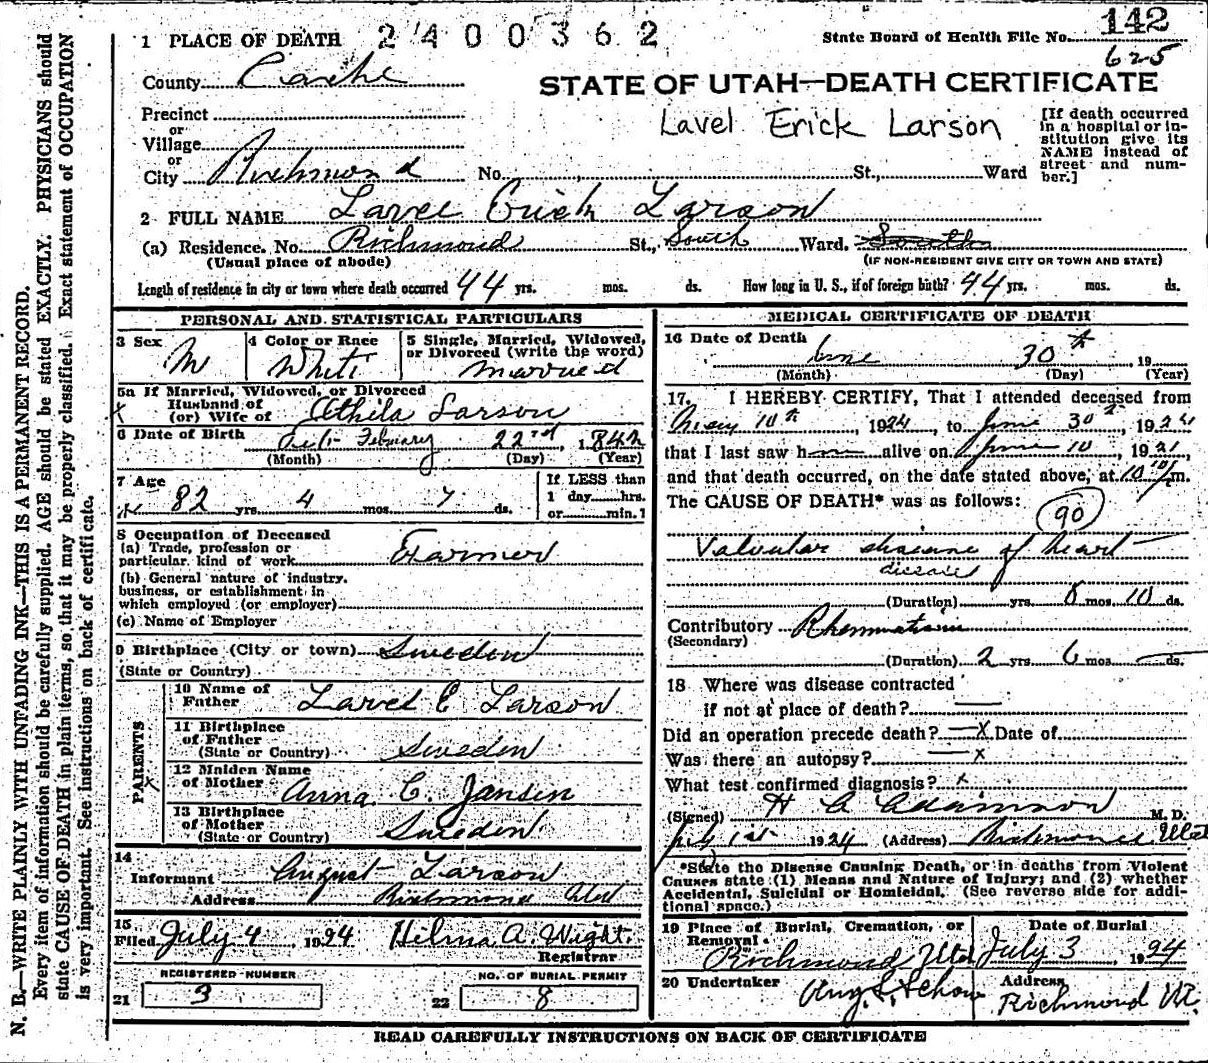 N. B.—WRITE PLAINLY WITH UNFADING INK—THIS IS A PERMANENT RECORD.
Every item of information should be carefully supplied. AGE should be stated EXACTLY. PHYSICIANS should
state CAUSE OF DEATH in plain terms, so that it may be properly classified. Exact statement of OCCUPATION
is very important. See instructions on back of certificate.
1 PLACE OF DEATH 2400362
State Board of Health File No. 142
625
County Cache
STATE OF UTAH—DEATH CERTIFICATE
Precinct
or
Village
or
City Richmond No. St., Ward
Lavel Erick Larson
[If death occurred
in a hospital or in-
stitution give its
NAME instead of
street and num-
ber.]
2 FULL NAME Lavel Erick Larson
(a) Residence. No. Richmond St., South Ward. South
(Usual place of abode) (IF NON-RESIDENT GIVE CITY OR TOWN AND STATE)
Length of residence in city or town where death occurred 44 yrs. mos. ds. How long in U. S., if of foreign birth? 44 yrs. mos. ds.
PERSONAL AND STATISTICAL PARTICULARS
3 Sex M
4 Color or Race White
5 Single, Married, Widowed,
or Divorced (write the word)
married
5a If Married, Widowed, or Divorced
Husband of
(or) Wife of Larson
6 Date of Birth Feb February 22nd 1842
(Month) (Day) (Year)
7 Age
82 yrs. 4 mos. 7 ds.
If LESS than
1 day hrs.
or min.?
8 Occupation of Deceased
(a) Trade, profession or
particular kind of work Farmer
(b) General nature of industry,
business, or establishment in
which employed (or employer)
(c) Name of Employer
9 Birthplace (City or town) Sweden
(State or Country)
PARENTS
10 Name of
Father Lavel E Larson
11 Birthplace
of Father
(State or Country) Sweden
12 Maiden Name
of Mother Anna C. Jansen
13 Birthplace
of Mother
(State or Country) Sweden
14
Informant August Larson
Address Richmond Utah
15
Filed July 4 1924 Hilma A. Wight
Registrar
REGISTERED NUMBER
21 3
NO. OF BURIAL PERMIT
22 8
MEDICAL CERTIFICATE OF DEATH
16 Date of Death
June 30th, 19
(Month) (Day) (Year)
17. I HEREBY CERTIFY, That I attended deceased from
10th, 1924, to June 30th, 1924
that I last saw h alive on June 10, 1921,
and that death occurred, on the date stated above, at 10 m.
The CAUSE OF DEATH* was as follows:
90
Valvular disease of heart
disease
(Duration) yrs. 8 mos. 10 ds.
Contributory Rheumatism
(Secondary)
(Duration) 2 yrs. 6 mos. ds.
18 Where was disease contracted
if not at place of death?
Did an operation precede death? — x Date of
Was there an autopsy? — x
What test confirmed diagnosis? x
(Signed) H A Adamson M. D.
July 1st 1924 (Address) Richmond Utah
*State the Disease Causing Death, or in deaths from Violent
Causes state (1) Means and Nature of Injury; and (2) whether
Accidental, Suicidal or Homicidal. (See reverse side for addi-
tional space.)
19 Place of Burial, Cremation, or
Removal Richmond Utah
Date of Burial
July 3 1924
20 Undertaker
Address
Richmond Ut.
READ CAREFULLY INSTRUCTIONS ON BACK OF CERTIFICATE